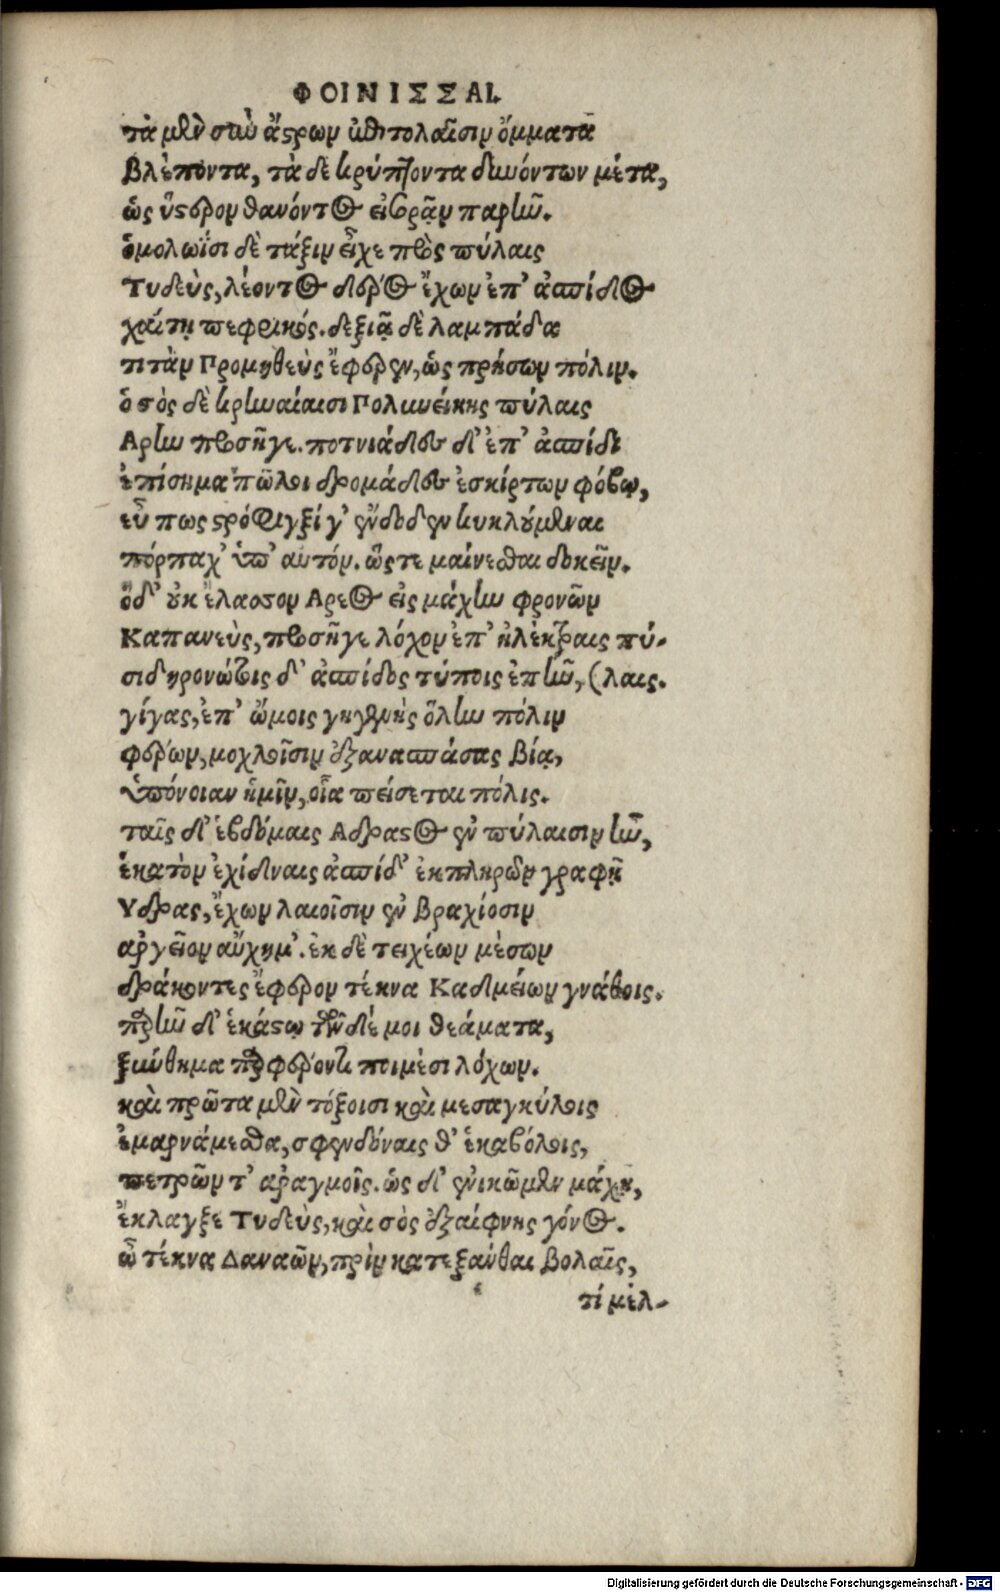 ΦΟΙΝΙΣΣΑΙ.
τὰ μὲν σὺν ἄστρων ἐπιτολαῖσιν ὄμματα
βλέποντα, τὰ δὲ κρύπτοντα δυνόντων μέτα,
ὡς ὕστερον θανόντος εἰσορᾷν παρῆν.
ὁμολωΐσι δὲ τάξιν εἶχε πρὸς πύλαις
Τυδεὺς, λέοντος δέρος ἔχων ἐπ' ἀσπίδος
χαίτῃ πεφρικός. δεξιᾷ δὲ λαμπάδα
τιτὰν Προμηθεὺς ἔφερεν, ὡς πρήσων πόλιν.
ὁ σὸς δὲ κρηναίαισι Πολυνείκης πύλαις
Αρην προσῆγε. ποτνιάδες δ' ἐπ' ἀσπίδι
ἐπίσημα πῶλοι δρομάδες ἐσκίρτων φόβῳ,
εὖ πως στρόφιγξί γ' ἔνδοθεν κυκλούμεναι
πόρπαχ' ὑπ' αὐτόν. ὥςτε μαίνεσθαι δοκεῖν.
ὅδ' οὐκ ἔλασσον Αρεος εἰς μάχην φρονῶν
Καπανεὺς, προσῆγε λόχον ἐπ' ἠλέκτραις πύ-
σιδηρονώτοις δ' ἀσπίδος τύποις ἐπῆν, (λαις.
γίγας, ἐπ' ὤμοις γηγενὴς ὅλην πόλιν
φέρων, μοχλοῖσιν ἐξανασπάσας βίᾳ,
ὑπόνοιαν ἡμῖν, οἷα πείσεται πόλις.
ταῖς δ' ἑβδόμαις Αδραστος ἐν πύλαισιν ἦν,
ἑκατὸν ἐχίδναις ἀσπίδ' ἐκπληρῶν γραφῇ
Υδρας, ἔχων λαιοῖσιν ἐν βραχίοσιν
αργεῖον αὔχημ'. ἐκ δὲ τειχέων μέσων
δράκοντες ἔφερον τέκνα Καδμείων γνάθοις.
παρῆν δ' ἑκάστῳ τῶνδέ μοι θεάματα,
ξύνθημα παραφέροντι ποιμέσι λόχων.
καὶ πρῶτα μὲν τόξοισι καὶ μεσαγκύλοις
ἐμαρνάμεσθα, σφενδόναις θ' ἑκαβόλοις,
πετρῶν τ' αραγμοῖς. ὡς δ' ἐνικῶμεν μάχῃ,
ἔκλαγξε Τυδεὺς, καὶ σὸς ἐξαίφνης γόνος.
ὦ τέκνα Δαναῶν, πρὶν κατεξάνθαι βολαῖς,
τί μέλ-
Digitalisierung gefördert durch die Deutsche Forschungsgemeinschaft - DFG